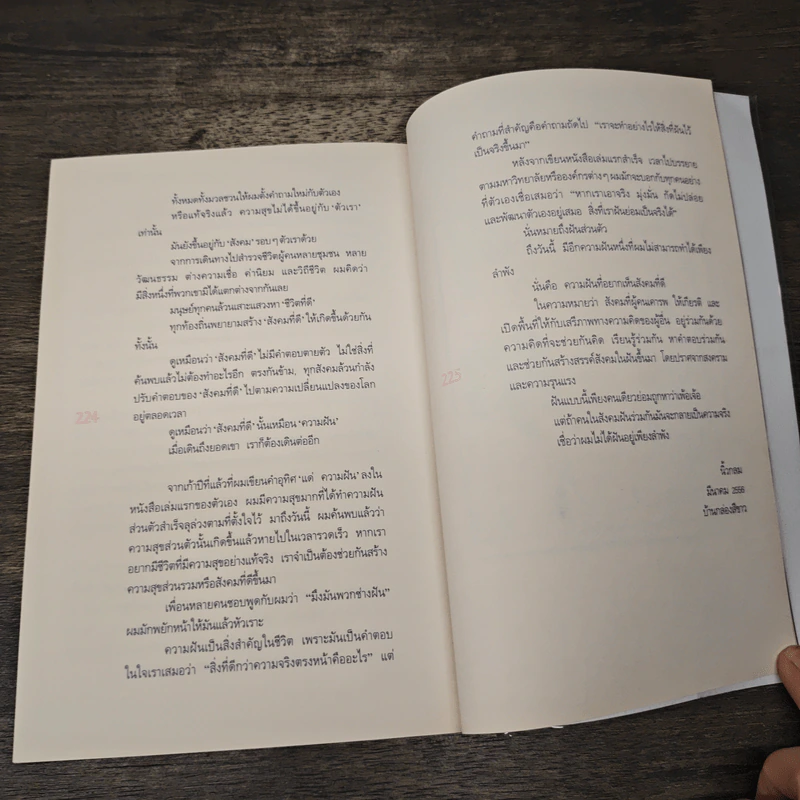 ทั้งหมดทั้งมวลชวนให้ผมตั้งคำถามใหม่กับตัวเอง
หรือแท้จริงแล้ว ความสุขไม่ได้ขึ้นอยู่กับ ‘ตัวเรา’
เท่านั้น
มันยังขึ้นอยู่กับ ‘สังคม’ รอบๆ ตัวเราด้วย
จากการเดินทางไปสำรวจชีวิตผู้คนหลายชุมชน หลาย
วัฒนธรรม ต่างความเชื่อ ค่านิยม และวิถีชีวิต ผมคิดว่า
มีสิ่งหนึ่งที่พวกเขามิได้แตกต่างจากกันเลย
มนุษย์ทุกคนล้วนเสาะแสวงหา ‘ชีวิตที่ดี’
ทุกท้องถิ่นพยายามสร้าง ‘สังคมที่ดี’ ให้เกิดขึ้นด้วยกัน
ทั้งนั้น
ดูเหมือนว่า ‘สังคมที่ดี’ ไม่มีคำตอบตายตัว ไม่ใช่สิ่งที่
ค้นพบแล้วไม่ต้องทำอะไรอีก ตรงกันข้าม, ทุกสังคมล้วนกำลัง
ปรับคำตอบของ ‘สังคมที่ดี’ ไปตามความเปลี่ยนแปลงของโลก
อยู่ตลอดเวลา
ดูเหมือนว่า ‘สังคมที่ดี’ นั้นเหมือน ‘ความฝัน’
เมื่อเดินถึงยอดเขา เราก็ต้องเดินต่ออีก
จากเก้าปีที่แล้วที่ผมเขียนคำอุทิศ ‘แด่ ความฝัน’ ลงใน
หนังสือเล่มแรกของตัวเอง ผมมีความสุขมากที่ได้ทำความฝัน
ส่วนตัวสำเร็จลุล่วงตามที่ตั้งใจไว้ มาถึงวันนี้ ผมค้นพบแล้วว่า
ความสุขส่วนตัวนั้นเกิดขึ้นแล้วหายไปในเวลารวดเร็ว หากเรา
อยากมีชีวิตที่มีความสุขอย่างแท้จริง เราจำเป็นต้องช่วยกันสร้าง
ความสุขส่วนรวมหรือสังคมที่ดีขึ้นมา
เพื่อนหลายคนชอบพูดกับผมว่า “มึงมันพวกช่างฝัน”
ผมมักพยักหน้าให้มันแล้วหัวเราะ
ความฝันเป็นสิ่งสำคัญในชีวิต เพราะมันเป็นคำตอบ
ในใจเราเสมอว่า “สิ่งที่ดีกว่าความจริงตรงหน้าคืออะไร” แต่
224
คำถามที่สำคัญคือคำถามถัดไป “เราจะทำอย่างไรให้สิ่งที่ฝันไว้
เป็นจริงขึ้นมา”
หลังจากเขียนหนังสือเล่มแรกสำเร็จ เวลาไปบรรยาย
ตามมหาวิทยาลัยหรือองค์กรต่างๆ ผมมักจะบอกกับทุกคนอย่าง
ที่ตัวเองเชื่อเสมอว่า “หากเราเอาจริง มุ่งมั่น กัดไม่ปล่อย
และพัฒนาตัวเองอยู่เสมอ สิ่งที่เราฝันย่อมเป็นจริงได้”
นั่นหมายถึงฝันส่วนตัว
ถึงวันนี้ มีอีกความฝันหนึ่งที่ผมไม่สามารถทำได้เพียง
ลำพัง
นั่นคือ ความฝันที่อยากเห็นสังคมที่ดี
ในความหมายว่า สังคมที่ผู้คนเคารพ ให้เกียรติ และ
เปิดพื้นที่ให้กับเสรีภาพทางความคิดของผู้อื่น อยู่ร่วมกันด้วย
ความคิดที่จะช่วยกันคิด เรียนรู้ร่วมกัน หาคำตอบร่วมกัน
และช่วยกันสร้างสรรค์สังคมในฝันขึ้นมา โดยปราศจากสงคราม
และความรุนแรง
ฝันแบบนี้เพียงคนเดียวย่อมถูกหาว่าเพ้อเจ้อ
แต่ถ้าคนในสังคมฝันร่วมกันมันจะกลายเป็นความจริง
เชื่อว่าผมไม่ได้ฝันอยู่เพียงลำพัง
นิ้วกลม
มีนาคม 2556
บ้านกล่องสีขาว
225